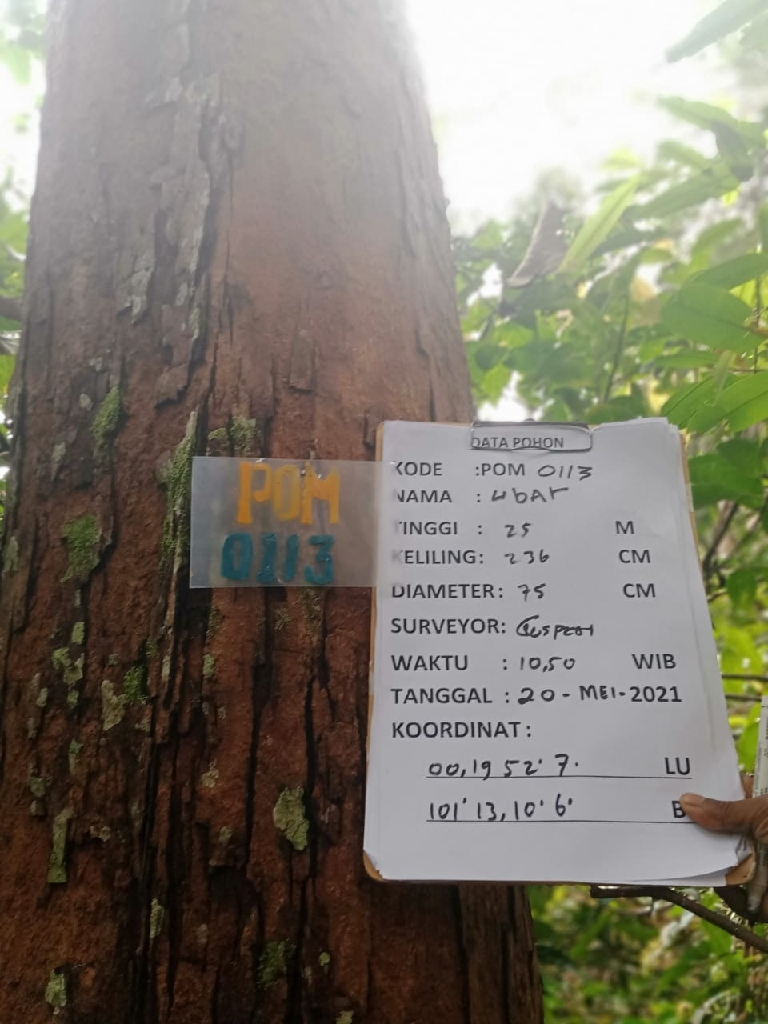 POM
0113
DATA POHON
KODE :POM 0113
NAMA : ubar
TINGGI : 25 M
KELILING: 236 CM
DIAMETER: 75 CM
SURVEYOR:
WAKTU : 10,50 WIB
TANGGAL : 20 - MEI-2021
KOORDINAT:
00,19 52' 7. LU
101' 13, 10' 6' B